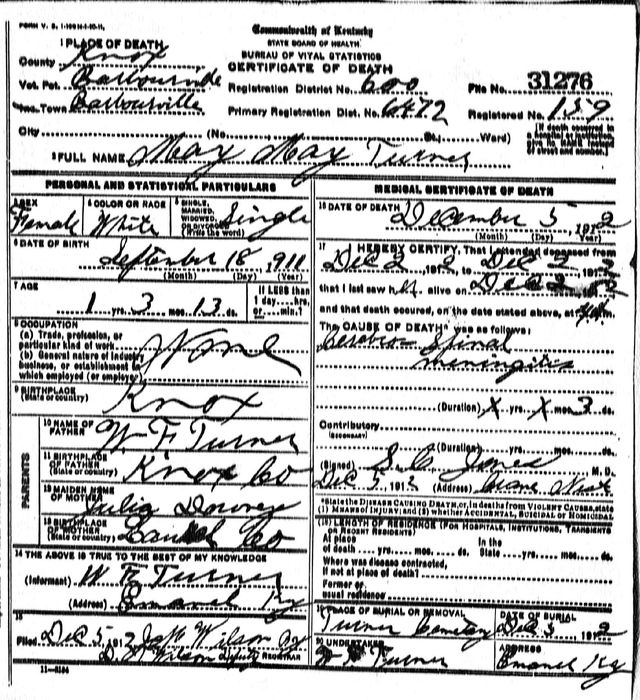 FORM V. S. 1-
Commonwealth of Kentucky
STATE BOARD OF HEALTH
BUREAU OF VITAL STATISTICS
CERTIFICATE OF DEATH
1 PLACE OF DEATH
County Knox
Vot. Pct. Barbourville
Inc. Town Barbourville
City (No. St., Ward)
Registration District No. 600
Primary Registration Dist. No. 6472
File No. 31276
Registered No. 159
[If death occurred in a hospital or institution, give its NAME instead of street and number.]
2 FULL NAME May May Turner
PERSONAL AND STATISTICAL PARTICULARS
3 SEX Female
4 COLOR OR RACE White
5 SINGLE, MARRIED, WIDOWED, OR DIVORCED (Write the word) Single
6 DATE OF BIRTH
September 18, 1911
(Month) (Day) (Year)
7 AGE
1 yrs. 3 mos. 13 ds.
If LESS than 1 day....hrs. or....min.?
8 OCCUPATION
(a) Trade, profession, or particular kind of work
(b) General nature of industry business, or establishment in which employed (or employer)
None
9 BIRTHPLACE
(State or country) Knox
PARENTS
10 NAME OF FATHER W. F. Turner
11 BIRTHPLACE OF FATHER (State or country) Knox Co
12 MAIDEN NAME OF MOTHER Julia
13 BIRTHPLACE OF MOTHER (State or country) Co
14 THE ABOVE IS TRUE TO THE BEST OF MY KNOWLEDGE
(Informant) W F Turner
(Address) Emanel Ky
15
Filed Dec 5 1912 Wilson
Wilson Deputy REGISTRAR
11-
MEDICAL CERTIFICATE OF DEATH
16 DATE OF DEATH December 5, 1912
(Month) (Day) (Year)
17 I HEREBY CERTIFY, That I attended deceased from
Dec 2 191 , to Dec 191
that I last saw h alive on Dec
and that death occured, on the date stated above, at m.
The CAUSE OF DEATH* was as follows:
Spinal
meningitis
(Duration) X yrs. X mos. 3 ds.
Contributory
(SECONDARY)
(Duration) yrs. mos. ds.
(Signed) S. C. Jones M. D.
Dec 5, 1912 (Address)
*State the DISEASE CAUSING DEATH, or, in deaths from VIOLENT CAUSES, state (1) MEANS OF INJURY; and (2) whether ACCIDENTAL, SUICIDAL or HOMICIDAL
(18) LENGTH OF RESIDENCE (FOR HOSPITALS, INSTITUTIONS, TRANSIENTS OR RECENT RESIDENTS)
At place of death yrs. mos. ds.
In the State yrs. mos. ds.
Where was disease contracted, if not at place of death?
Former or usual residence
19 PLACE OF BURIAL OR REMOVAL
Turner Cemetery
DATE OF BURIAL
Dec 3 1912
20 UNDERTAKER
Turner
ADDRESS
Emanel Ky